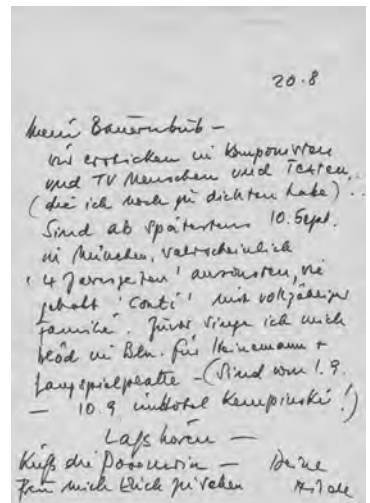 20.8
Mein Bauernbub –
wir ersticken in Komponisten
und TV Menschen und Texten,
(die ich noch zu dichten habe) ..
Sind ab spätestens 10. Sept.
in München, wahrscheinlich
'4 Jareszeiten' ansonsten, wie
gehabt 'Conti' mit vollzähliger
Familie. Zuvor singe ich mich
blöd in Bln. für Heinemann +
Langspielplatte – (Sind vom 1.9.
– 10.9 im Hotel Kempinski!)
Lass hören –
Küss die – Deine
Freu mich Dich zu sehen